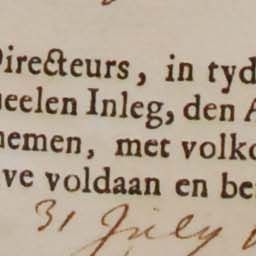 Directeurs, in tyd
heelen Inleg, den A
nemen, met volko
ve voldaan en be
31 July